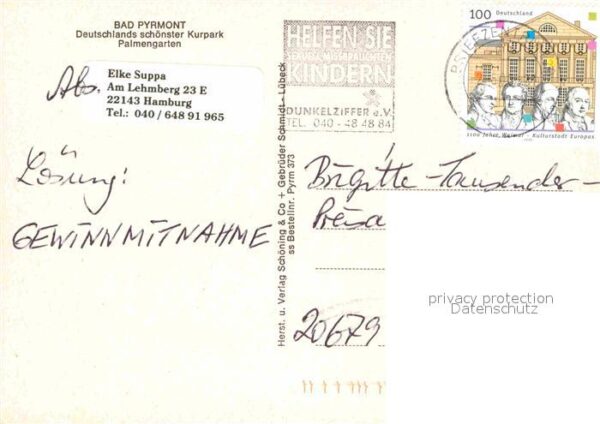 BAD PYRMONT
Deutschlands schönster Kurpark
Palmengarten
Abs.
Elke Suppa
Am Lehmberg 23 E
22143 Hamburg
Tel.: 040 / 648 91 965
Lösung:
GEWINNMITNAHME
Herst. u. Verlag Schöning & Co + Gebrüder Schmidt - Lübeck
ss Bestellnr. Pyrm 373
HELFEN SIE
KINDERN
DUNKELZIFFER e.V.
TEL. 040 - 48 48 84
BRIEFZEN
100 Deutschland
1100 Jahre Weimar - Kulturstadt Europas
Brigitte-Tausender-
20679
privacy protection
Datenschutz